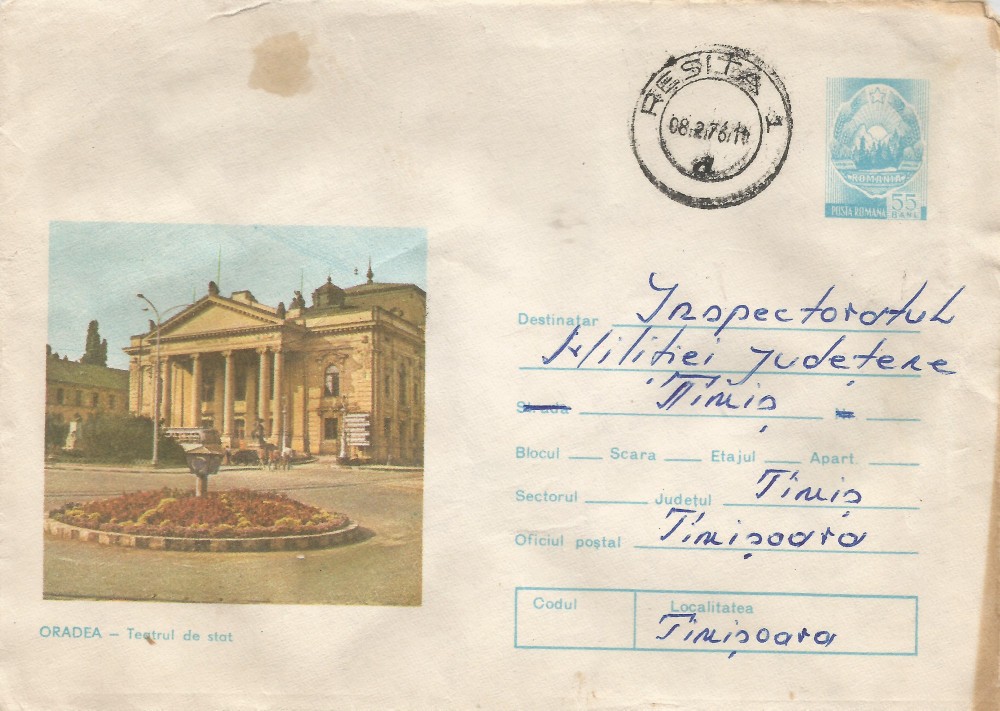 RESITA 1
08.2.76/11
a
ROMANIA
POSTA ROMANA 55 BANI
Destinatar Inspectoratul
Miliției Județene
Strada Timiș
Blocul Scara Etajul Apart.
Sectorul Județul Timiș
Oficiul poștal Timișoara
Codul Localitatea
Timișoara
ORADEA – Teatrul de stat